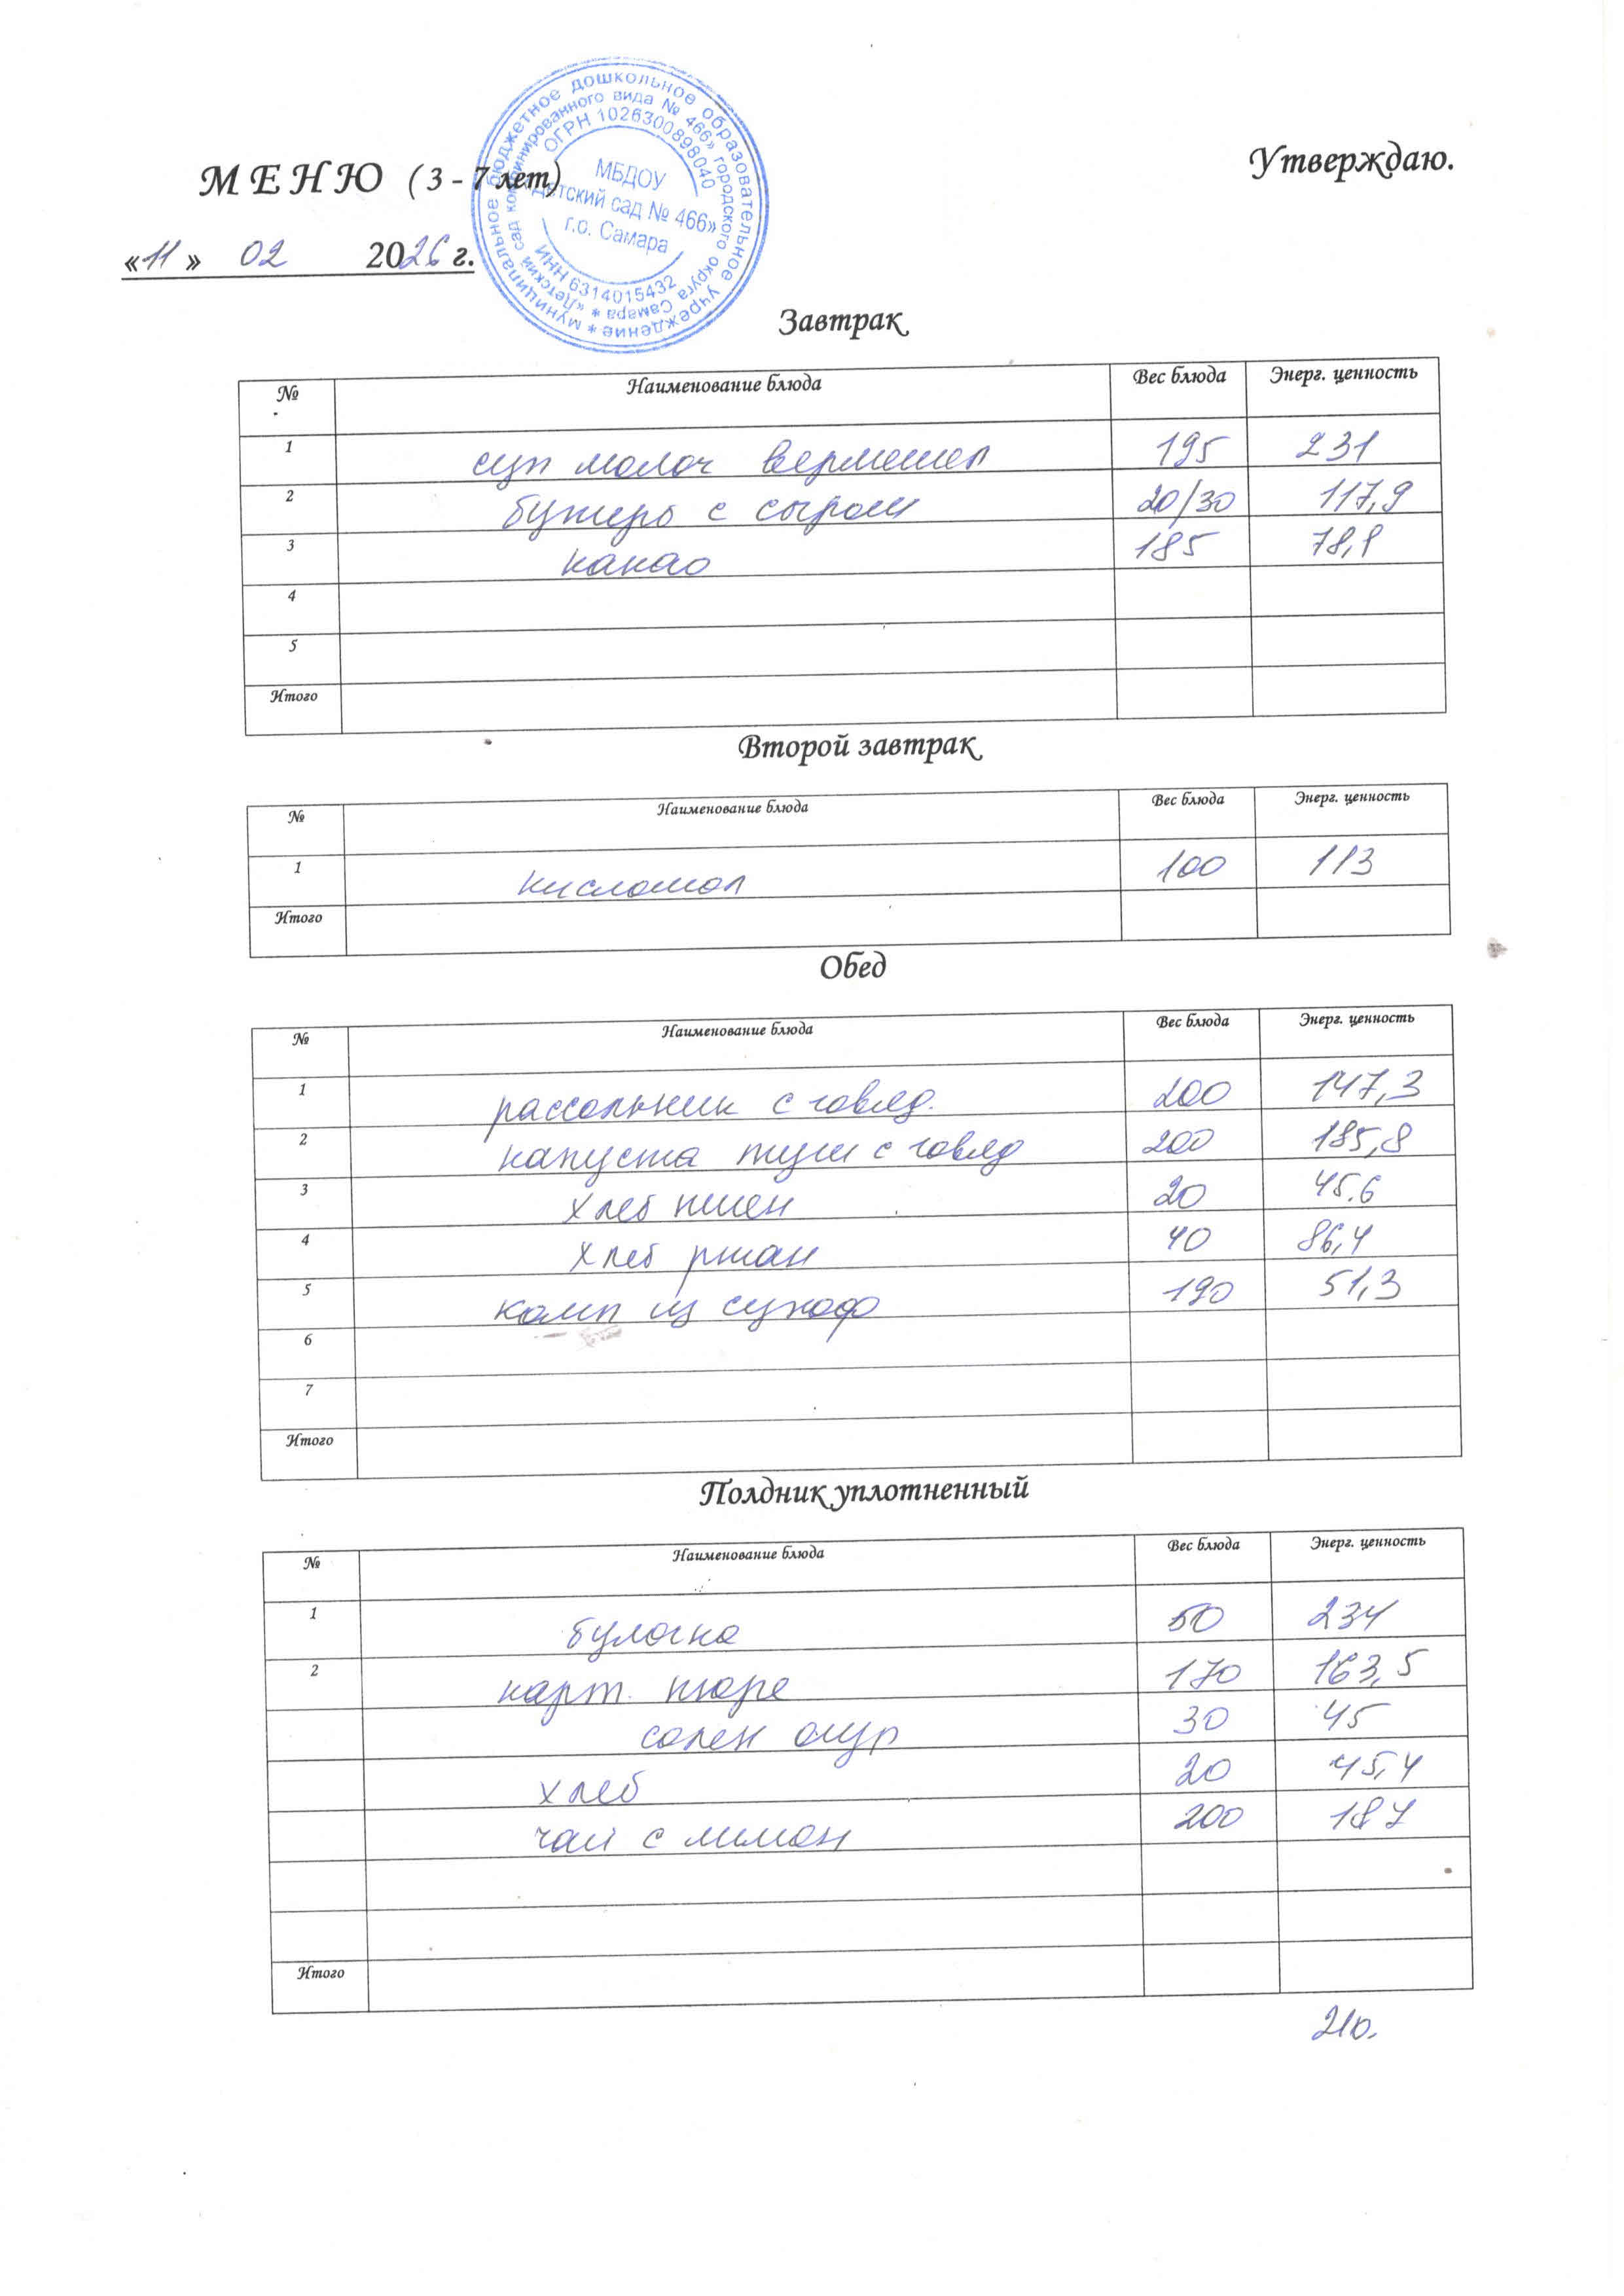 Утверждаю.
МЕНЮ (3 - 7 лет)
«11» 02 2026 г.
муниципальное бюджетное дошкольное образовательное учреждение
«Детский сад комбинированного вида № 466» городского округа Самара
ОГРН 1026300898040
МБДОУ
«Детский сад № 466»
г.о. Самара
ИНН 6314015432
Завтрак
№ Наименование блюда Вес блюда Энерг. ценность
1 суп молоч вермешел 195 231
2 бутерб с сыром 20/30 117,9
3 какао 185 78,8
4
5
Итого
Второй завтрак
№ Наименование блюда Вес блюда Энерг. ценность
1 кисломол 100 113
Итого
Обед
№ Наименование блюда Вес блюда Энерг. ценность
1 рассольник с говяд. 200 147,3
2 капуста туш с говяд 200 185,8
3 хлеб пшен 20 45.6
4 хлеб ржан 40 86,4
5 комп из сухоф 190 51,3
6
7
Итого
Полдник уплотненный
№ Наименование блюда Вес блюда Энерг. ценность
1 булочка 50 234
2 карт. пюре 170 163,5
солен огур 30 45
хлеб 20 45,4
чай с лимон 200 187
Итого